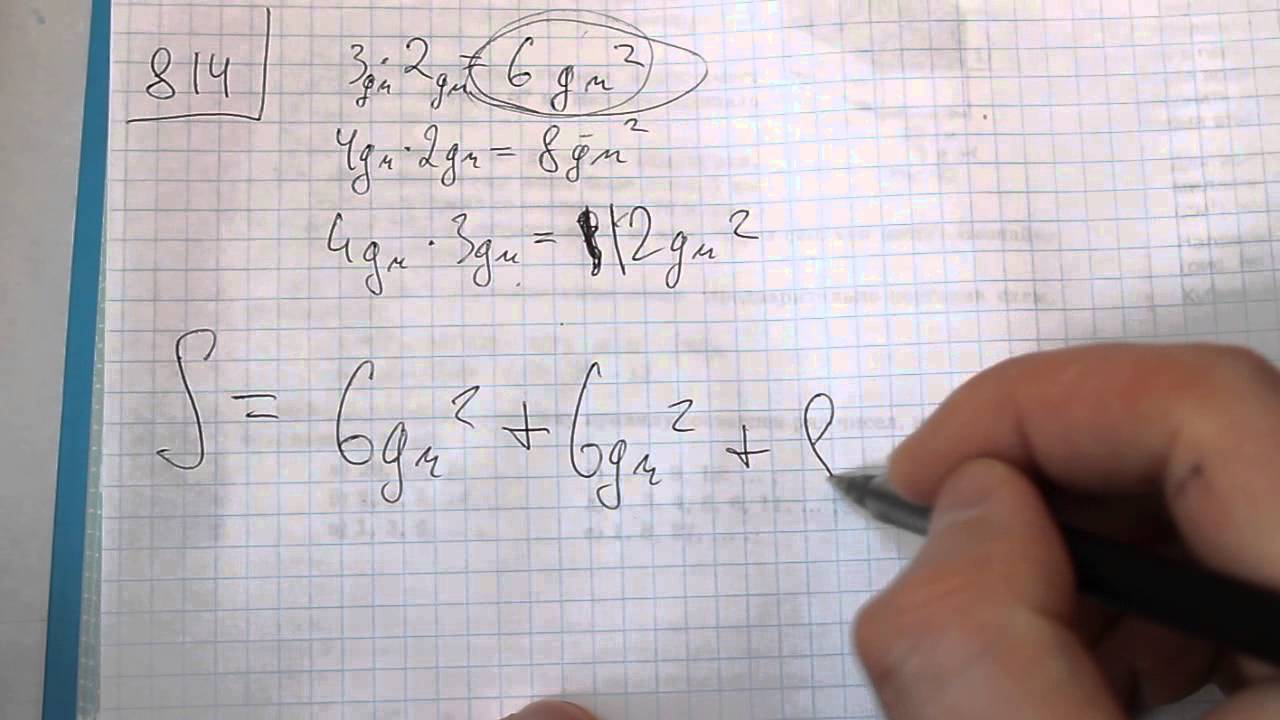 814
3дм · 2дм = 6 дм²
4дм · 2дм = 8дм²
4дм · 3дм = 12дм²
S = 6дм² + 6дм² +